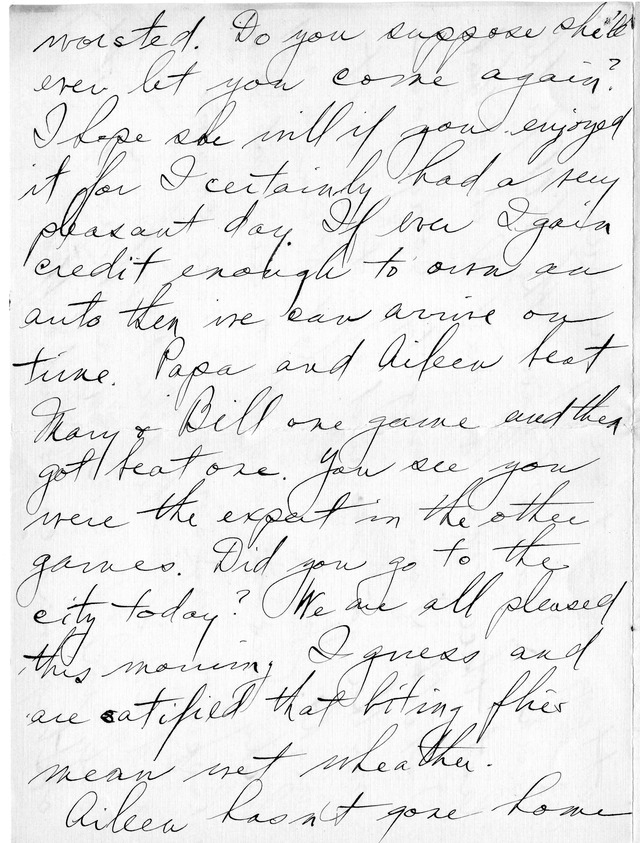 worsted. Do you suppose she'll
ever let you come again?
I hope she will if you enjoyed
it for I certainly had a very
pleasant day. If ever I gain
credit enough to own an
auto then we can arrive on
time. Papa and Aileen beat
Mary & Bill one game and then
got beat one. You see you
were the expert in the other
games. Did you go to the
city today? We are all pleased
this morning I guess and
are satified that biting flies
mean wet wheather.
Aileen hasn't gone home